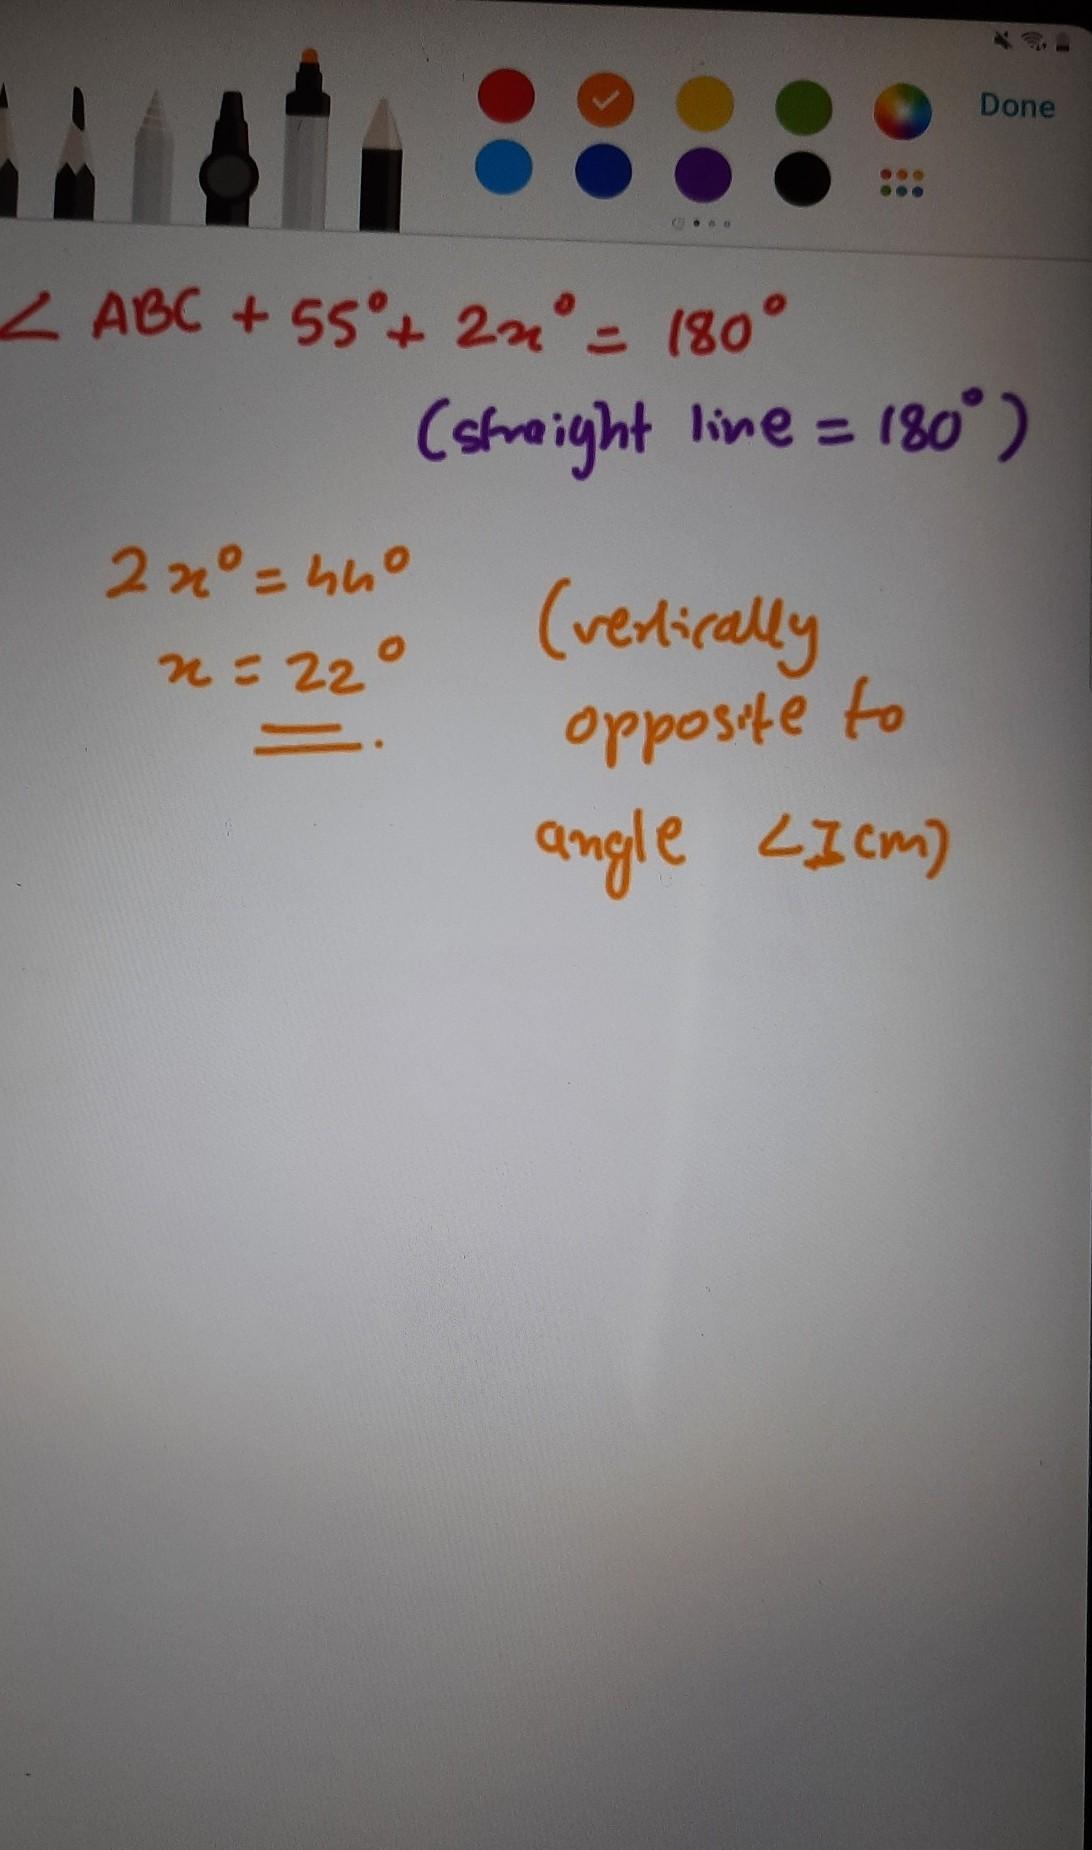 Done
∠ ABC + 55° + 2x° = 180°
(straight line = 180°)
2x° = 44°
x = 22°
(vertically
opposite to
angle ∠ICM)